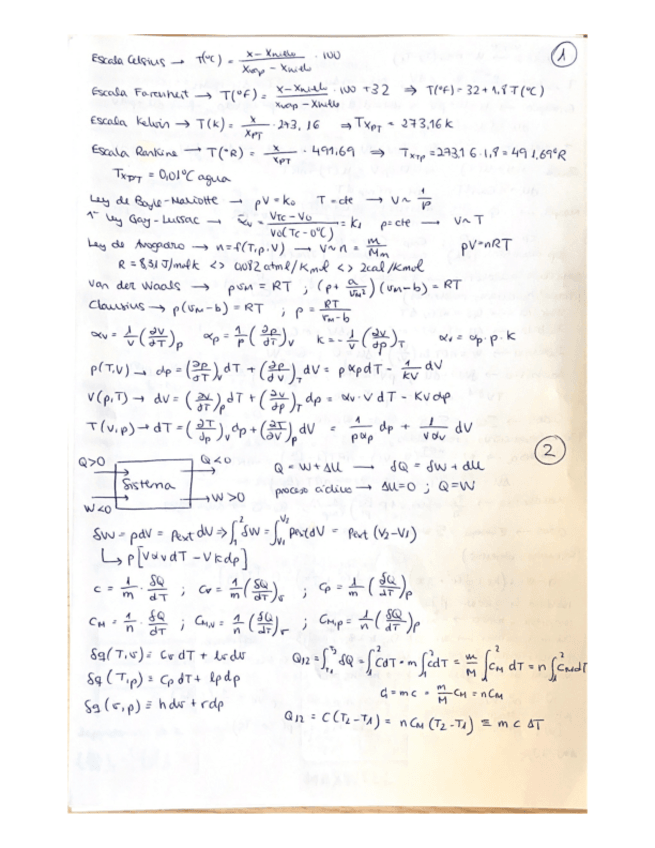 1
Escala Celsius → T(ºC) = (x − xhielo)/(xvap − xhielo) · 100
Escala Farenheit → T(ºF) = (x − xhielo)/(xvap − xhielo) · 100 + 32 ⇒ T(ºF) = 32 + 1,8 T(ºC)
Escala Kelvin → T(K) = x/xPT · 273,16 ⇒ TxPT = 273,16 K
Escala Rankine → T(ºR) = x/xPT · 491,69 ⇒ TxTP = 273,16 · 1,8 = 491,69ºR
TxPT = 0,01ºC agua
Ley de Boyle-Mariotte → pV = k0 T = cte → V ~ 1/p
1ª Ley Gay-Lussac → αv = (VTc − V0)/(V0(Tc − 0ºC)) = k1 p = cte → V ~ T
Ley de Avogadro → n = f(T, p, V) → V ~ n = m/Mm pV = nRT
R = 8,31 J/molK <> 0,082 atml/Kmol <> 2cal/Kmol
Van der Waals → pvm = RT ; (p + a/vm²)(vm − b) = RT
Clausius → p(vm − b) = RT ; p = RT/(vm − b)
αv = 1/V (∂V/∂T)p αp = 1/p (∂p/∂T)V k = −1/V (∂V/∂p)T αv = αp · p · k
p(T,V) → dp = (∂p/∂T)V dT + (∂p/∂V)T dV = p αp dT − 1/kV dV
V(p,T) → dV = (∂V/∂T)p dT + (∂V/∂p)T dp = αv · V dT − KV dp
T(V,p) → dT = (∂T/∂p)V dp + (∂T/∂V)p dV = 1/pαp dp + 1/Vαv dV
2
Q>0 Q<0
Sistema
W<0 W>0
Q = W + ΔU → δQ = δW + dU
proceso cíclico → ΔU = 0 ; Q = W
δW = pdV = pext dV ⇒ ∫₁² δW = ∫V1V2 pext dV = pext (V2 − V1)
↳ p[Vαv dT − Vk dp]
c = 1/m · δQ/dT ; cv = 1/m (δQ/dT)v ; cp = 1/m (δQ/dT)p
cM = 1/n · δQ/dT ; cM,v = 1/n (δQ/dT)v ; cM,p = 1/n (δQ/dT)p
δq(T,v) = cv dT + lv dv
δq(T,p) = cp dT + lp dp
δq(v,p) = h dv + r dp
Q12 = ∫T1T2 δQ = ∫₁² CdT = m ∫₁² cdT = m/M ∫₁² cM dT = n ∫₁² cM dT
C = mc = m/M cM = ncM
Q12 = C(T2 − T1) = ncM (T2 − T1) ≡ m c ΔT